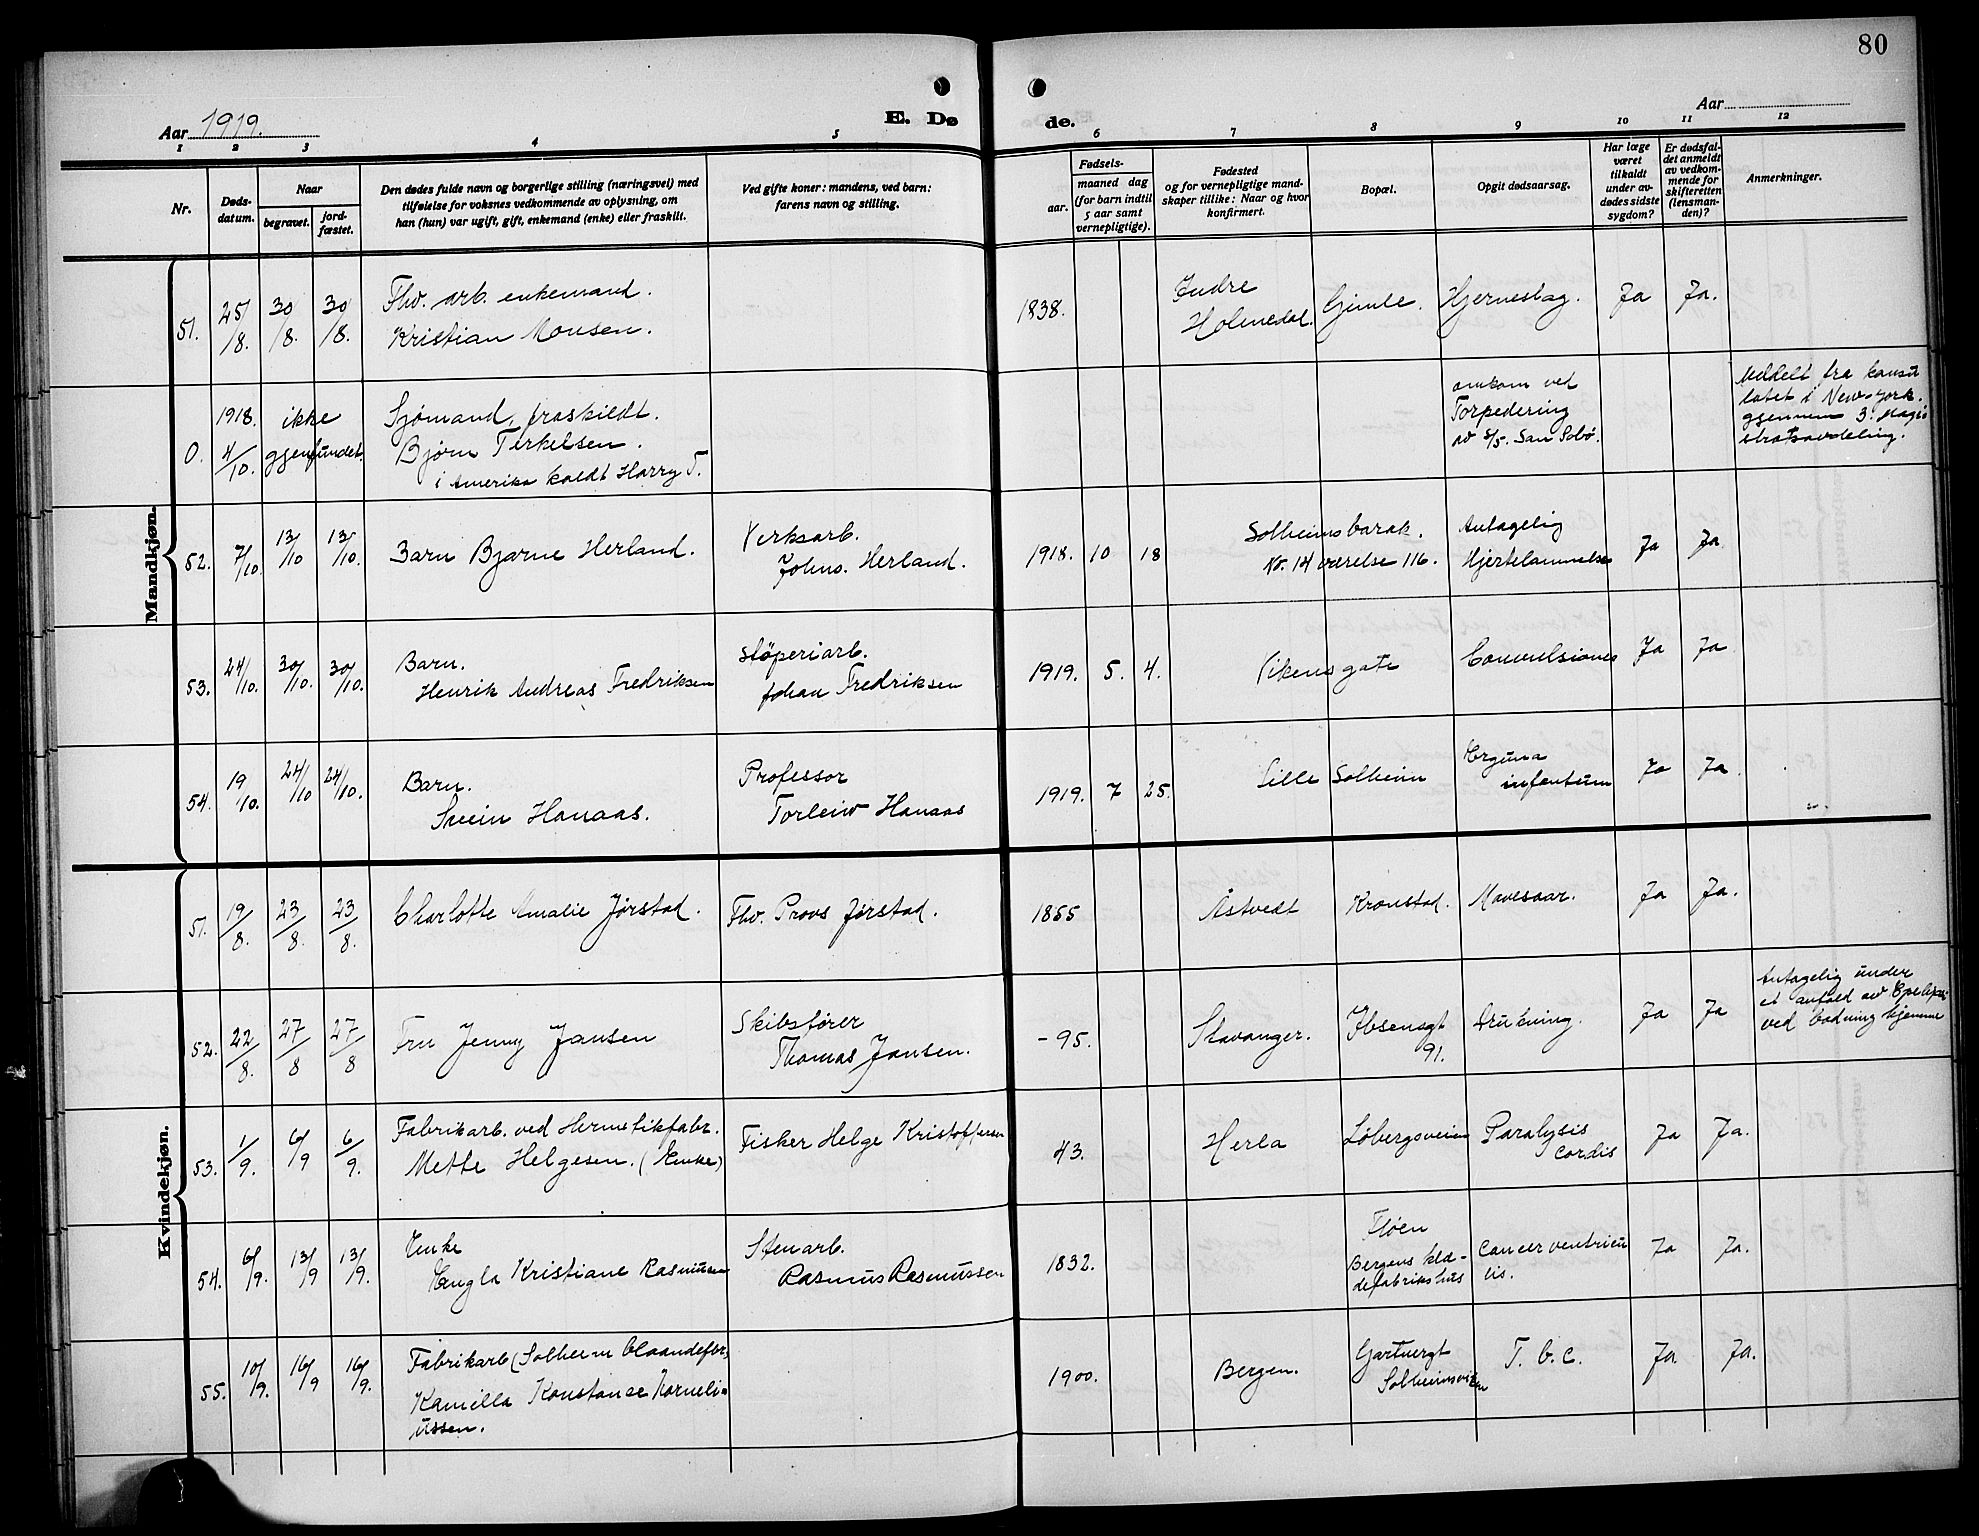 80
Aar 1919.
E. Døde.
Aar
1 2 3 4 5 6 7 8 9 10 11 12
Nr.
Døds-
datum.
Naar
begravet.
jord-
fæstet.
Den dødes fulde navn og borgerlige stilling (næringsvei) med
tilføielse for voksnes vedkommende av oplysning, om
han (hun) var ugift, gift, enkemand (enke) eller fraskilt.
Ved gifte koner: mandens, ved barn:
farens navn og stilling.
Fødsels-
aar.
maaned dag
(for barn indtil
5 aar samt
vernepligtige).
Fødested
og for vernepligtige mand-
skaper tillike: Naar og hvor
konfirmert.
Bopæl.
Opgit dødsaarsag.
Har læge
været
tilkaldt
under av-
dødes sidste
sygdom?
Er dødsfal-
det anmeldt
av vedkom-
mende for
skifteretten
(lensman-
den)?
Anmerkninger.
Mandkjøn.
51. 25/8. 30/8. 30/8.
Fhv. arb. enkemand.
Kristian Monsen.
1838.
Indre
Holmedal.
Gimle.
Hjerneslag.
Ja
Ja.
0. 1918. 4/10.
ikke
gjenfundet.
Sjømand, fraskildt.
Bjørn Terkelsen.
i Amerika kaldt Harry T.
omkom ved
Torpedering
av S/S. San Sabo.
Meddelt fra konsu
latet i New-York.
gjennem 3. Magi-
stratsavdeling.
52. 7/10. 13/10 13/10.
Barn Bjarne Herland.
Verksarb.
Johns. Herland.
1918. 10 18
Solheimsbarak.
Nr. 14 værelse 116.
Antagelig
Hjertelammelse
Ja
Ja.
53. 24/10. 30/10. 30/10.
Barn.
Henrik Andreas Fredriksen
støperiarb.
Johan Fredriksen
1919. 5. 4.
Vikensgate
Convulsiones
Ja
Ja
54. 19/10. 24/10 24/10.
Barn.
Svein Hanaas.
Professor
Torleiv Hanaas
1919. 7 25.
Lille Solheim
infantum
Ja
Ja.
Kvindekjøn.
51. 19/8. 23/8. 23/8.
Charlotte Amalie Jørstad.
Fhv. Provs Jørstad.
1855
Åstvedt
Kronstad.
Mavesaar.
Ja
Ja.
52. 22/8. 27/8 27/8
Fru Jenny Jansen
Skibsfører
Thomas Jansen.
-95.
Stavanger.
Ibsensgt
91.
Drukning.
Ja
Ja
Antagelig under
et anfald av Epelepsi
ved badning hjemme
53. 1/9. 6/9 6/9.
Fabrikarb. ved Hermetikfabr.
Mette Helgesen. (Enke)
Fisker Helge Kristoffersen
43.
Herla
Løbergsveien
Paralysis
cordis
Ja
Ja.
54. 6/9. 13/9 13/9.
Enke
Engla Kristiane Rasmussen
Stenarb.
Rasmus Rasmussen
1832.
Fløen
Bergens klæ-
defabriks hus
Cancer ventricu
lis.
Ja
Ja.
55. 10/9. 16/9 16/9.
Fabrikarb (Solheim blaandefbr.
Kamilla Konstanse Korneli-
ussen.
1900.
Bergen.
Gartnergt
Solheimsviken
T. b. c.
Ja.
Ja.